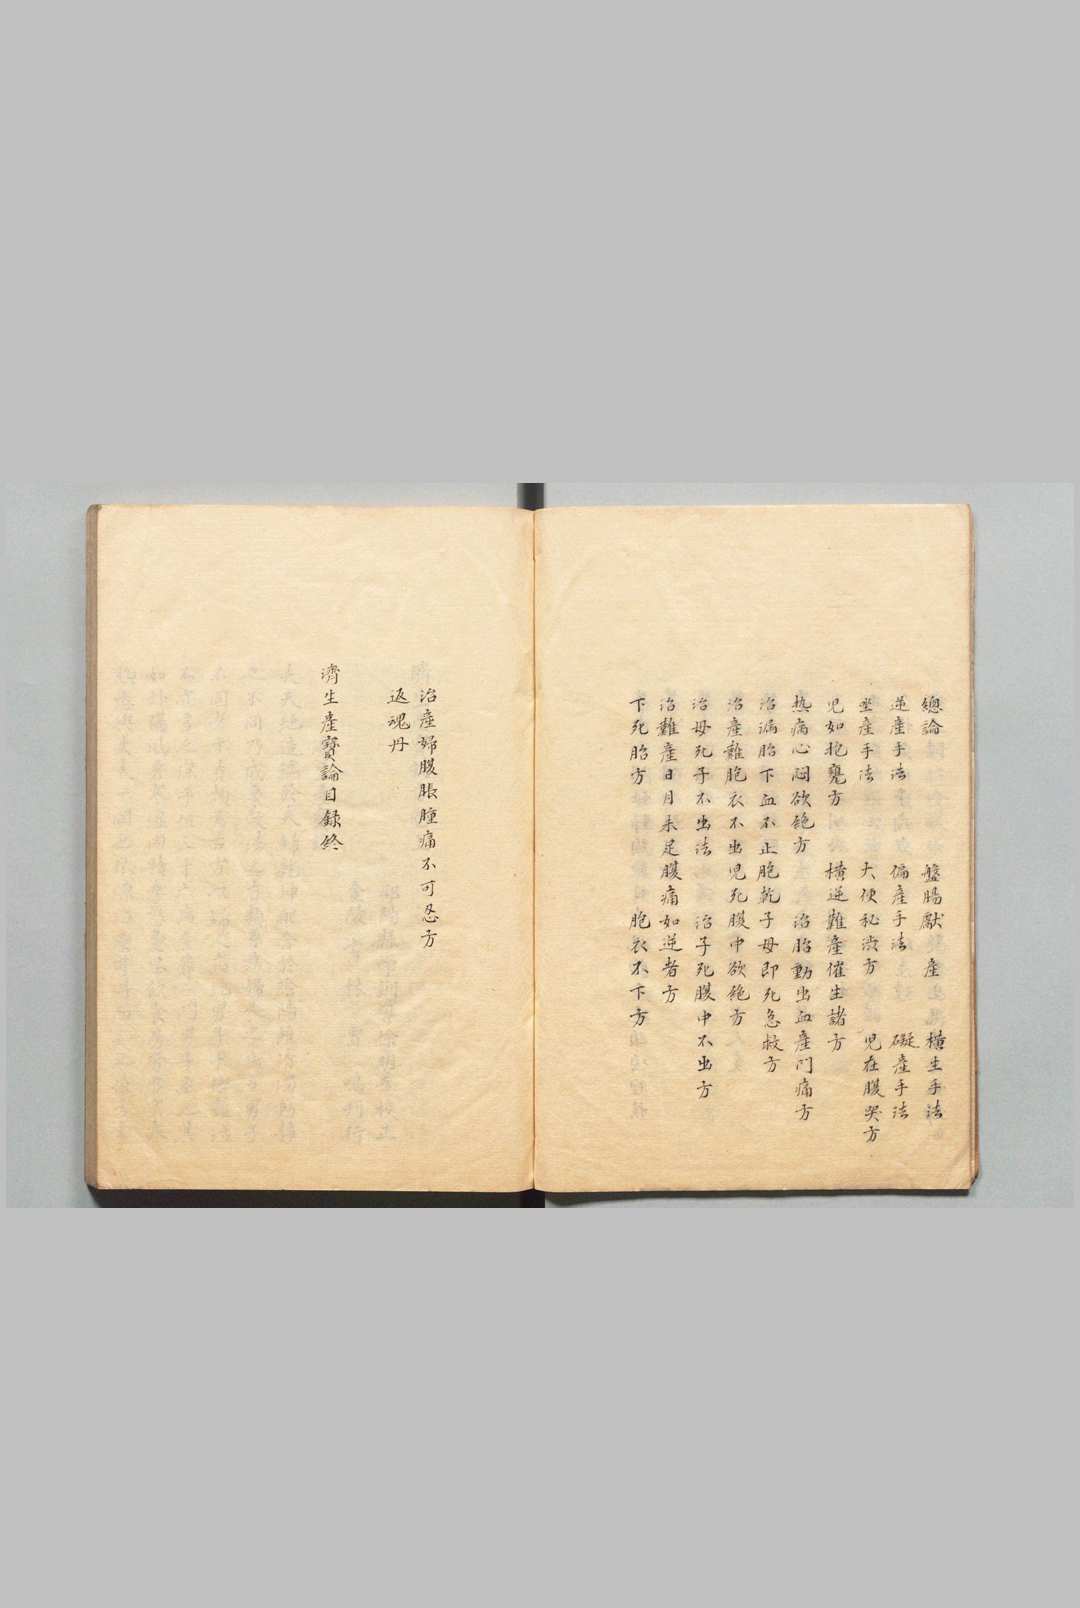 總論　盤腸獻産　橫生手法
逆産手法　偏産手法　礙産手法
坐産手法　大便秘澁方　児在腹哭方
児如抱甕方　橫逆難產催生諸方
熱病心悶欲絶方　治胎動出血產門痛方
治漏胎下血不止胞乾子母即死急救方
治產難胞衣不出児死腹中欲絶方
治母死子不出法　治子死腹中不出方
治難產日月未足腹痛如逆者方
下死胎方　胞衣不下方
治產婦腹脹腫痛不可忍方
返魂丹
濟生產寶論目録終